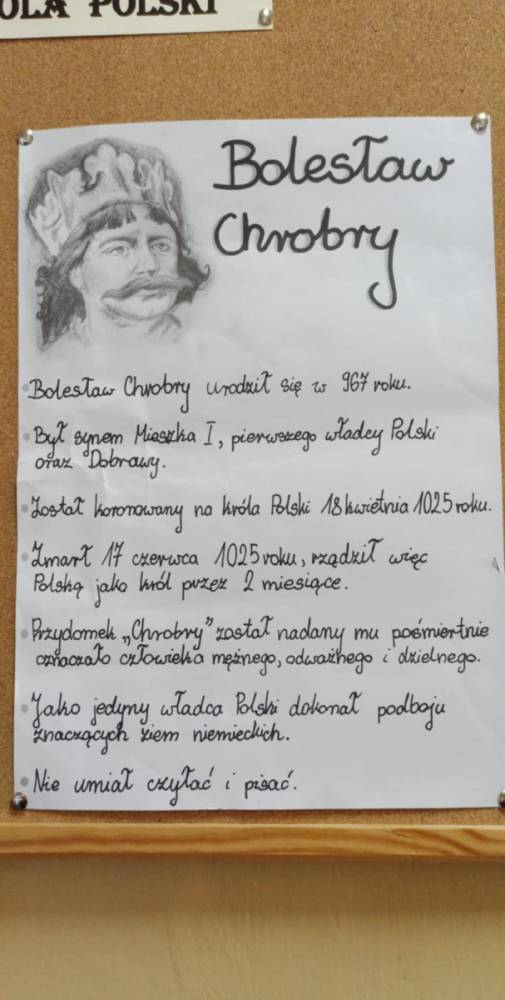 OLA POLSKI
Bolesław
Chrobry
Bolesław Chrobry urodził się w 967 roku.
Był synem Mieszka I, pierwszego władcy Polski
oraz Dobrawy.
Został koronowany na króla Polski 18 kwietnia 1025 roku.
Zmarł 17 czerwca 1025 roku, rządził więc
Polską jako król przez 2 miesiące.
Przydomek „Chrobry” został nadany mu pośmiertnie
oznaczało człowieka mężnego, odważnego i dzielnego.
Jako jedyny władca Polski dokonał podboju
znaczących ziem niemieckich.
Nie umiał czytać i pisać.